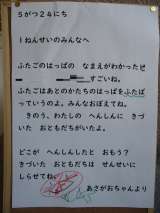 5がつ24にち
1ねんせいのみんなへ
ふたごのはっぱの なまえがわかった
すごいね。
ふたごはあとのかたちのはっぱをふたば
っていうのよ。みんなおぼえてね。
きのう、わたしの へんしんに きづ
いた おともだちがいたよ。
どこが へんしんしたと おもう?
きづいた おともだちは せんせいに
しらせてね。
あさがおちゃんより